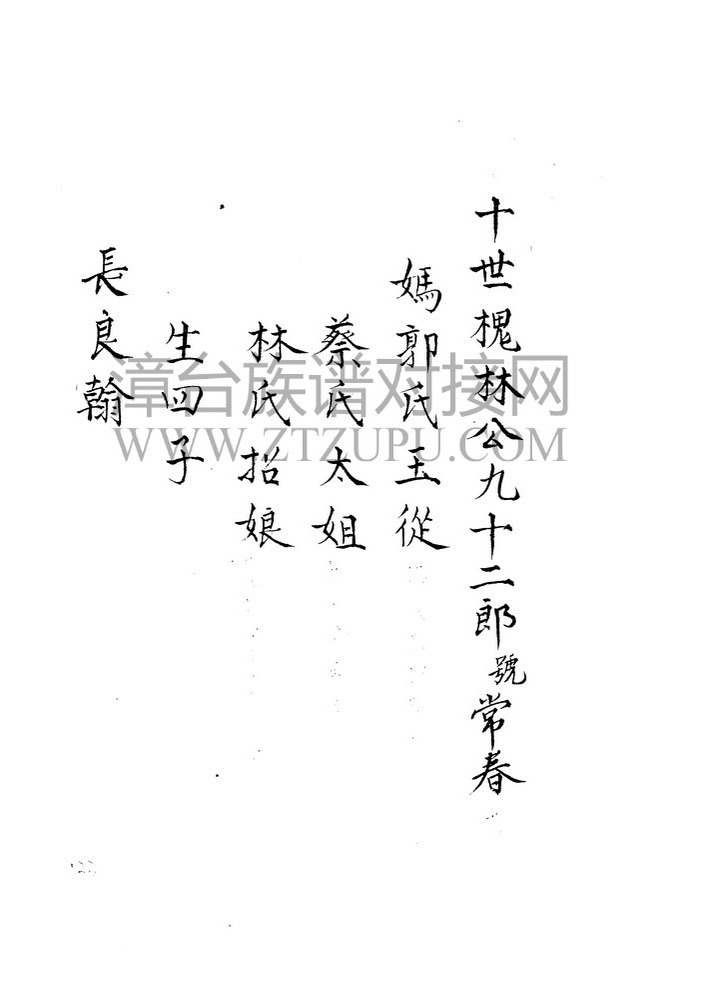 十世槐林公九十二郎號常春
媽郭氏玉從
蔡氏太姐
林氏招娘
生四子
長良翰
漳台族谱对接网
WWW.ZTZUPU.COM